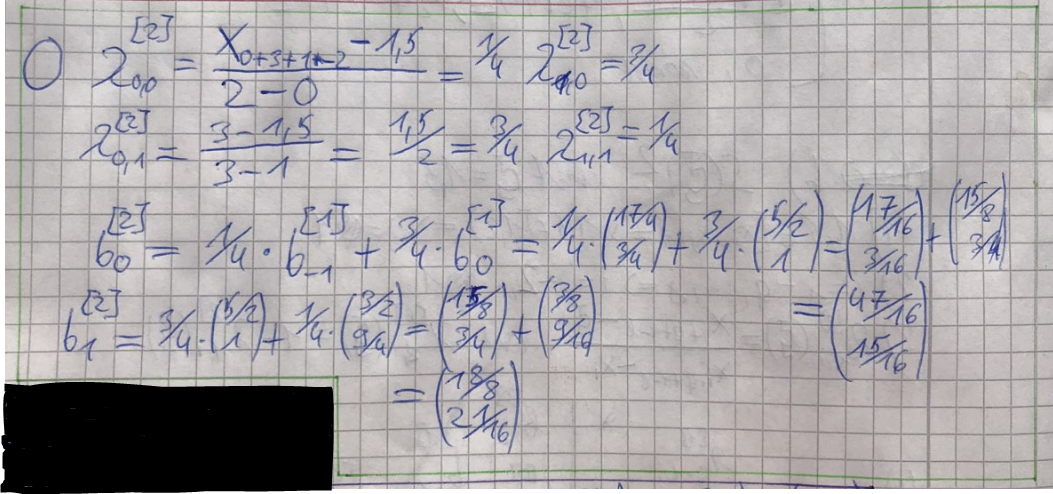 λ₀,₀^[2] = (x₀₊₃₊₁₋₂ - 1,5)/(2 - 0) = 1/4 λ₁,₀^[2] = 3/4
λ₀,₁^[2] = (3 - 1,5)/(3 - 1) = 1,5/2 = 3/4 λ₁,₁^[2] = 1/4
b₀^[2] = 1/4 · b₋₁^[1] + 3/4 · b₀^[1] = 1/4 · (17/4 3/4) + 3/4 · (5/2 1) = (17/16 3/16) + (15/8 3/4)
= (47/16 15/16)
b₁^[2] = 3/4 · (5/2 1) + 1/4 · (3/2 9/4) = (15/8 3/4) + (3/8 9/16)
= (18/8 21/16)